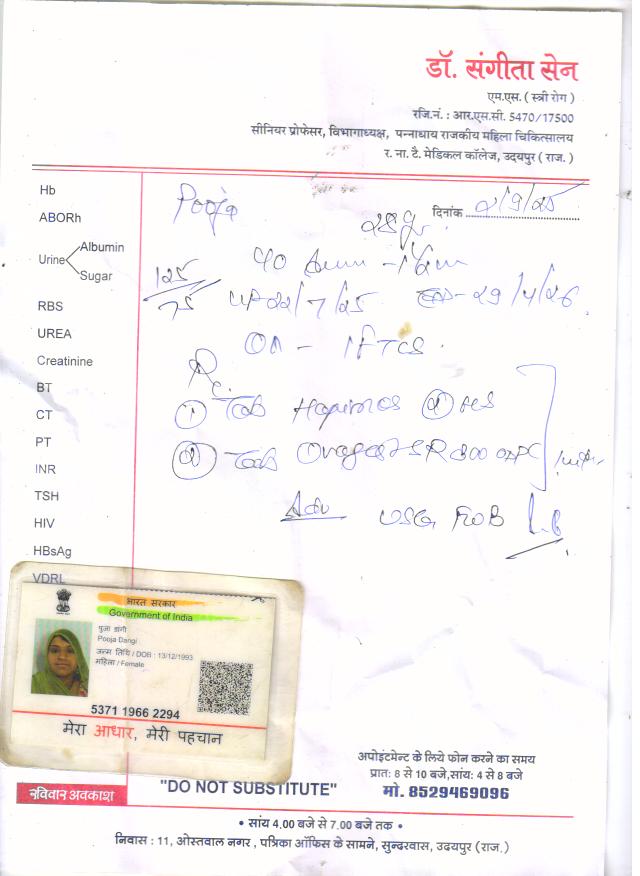 डॉ. संगीता सेन
एम.एस. ( स्त्री रोग )
रजि.नं. : आर.एस.सी. 5470/17500
सीनियर प्रोफेसर, विभागाध्यक्ष, पन्नाधाय राजकीय महिला चिकित्सालय
र. ना. टै. मेडिकल कॉलेज, उदयपुर ( राज. )
Hb
ABORh
Urine
Albumin
Sugar
RBS
UREA
Creatinine
BT
CT
PT
INR
TSH
HIV
HBsAg
VDRL
Pooja
दिनांक 2/9/25
28y
125
75
22/7/25 29/4/26
Rx
① Tab
② Tab SR 300
Adv USG
भारत सरकार
Government of India
पुजा डांगी
Pooja Dangi
जन्म तिथि / DOB : 13/12/1993
महिला / Female
5371 1966 2294
मेरा आधार, मेरी पहचान
अपोइंटमेन्ट के लिये फोन करने का समय
प्रातः 8 से 10 बजे,सांयः 4 से 8 बजे
मो. 8529469096
रविवार अवकाश
"DO NOT SUBSTITUTE"
• सांय 4.00 बजे से 7.00 बजे तक •
निवास : 11, ओस्तवाल नगर , पत्रिका ऑफिस के सामने, सुन्दरवास, उदयपुर (राज.)